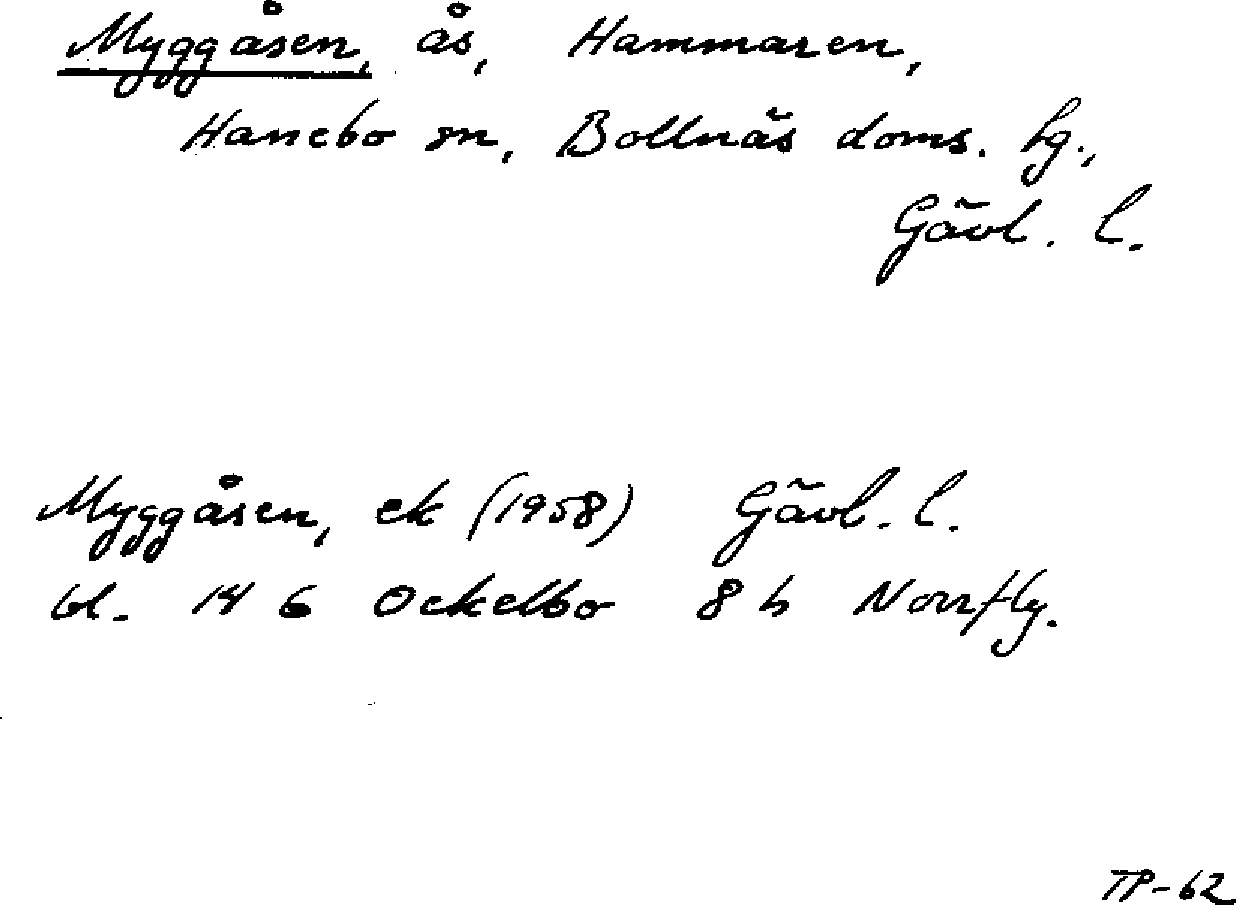 Myggåsen, ås, Hammaren,
Hanebo sn, Bollnäs doms. hg.,
Gävl. l.
Myggåsen, ek (1958) Gävl. l.
bl. 14 G Ockelbo 8 h Norrfly.
TP-62